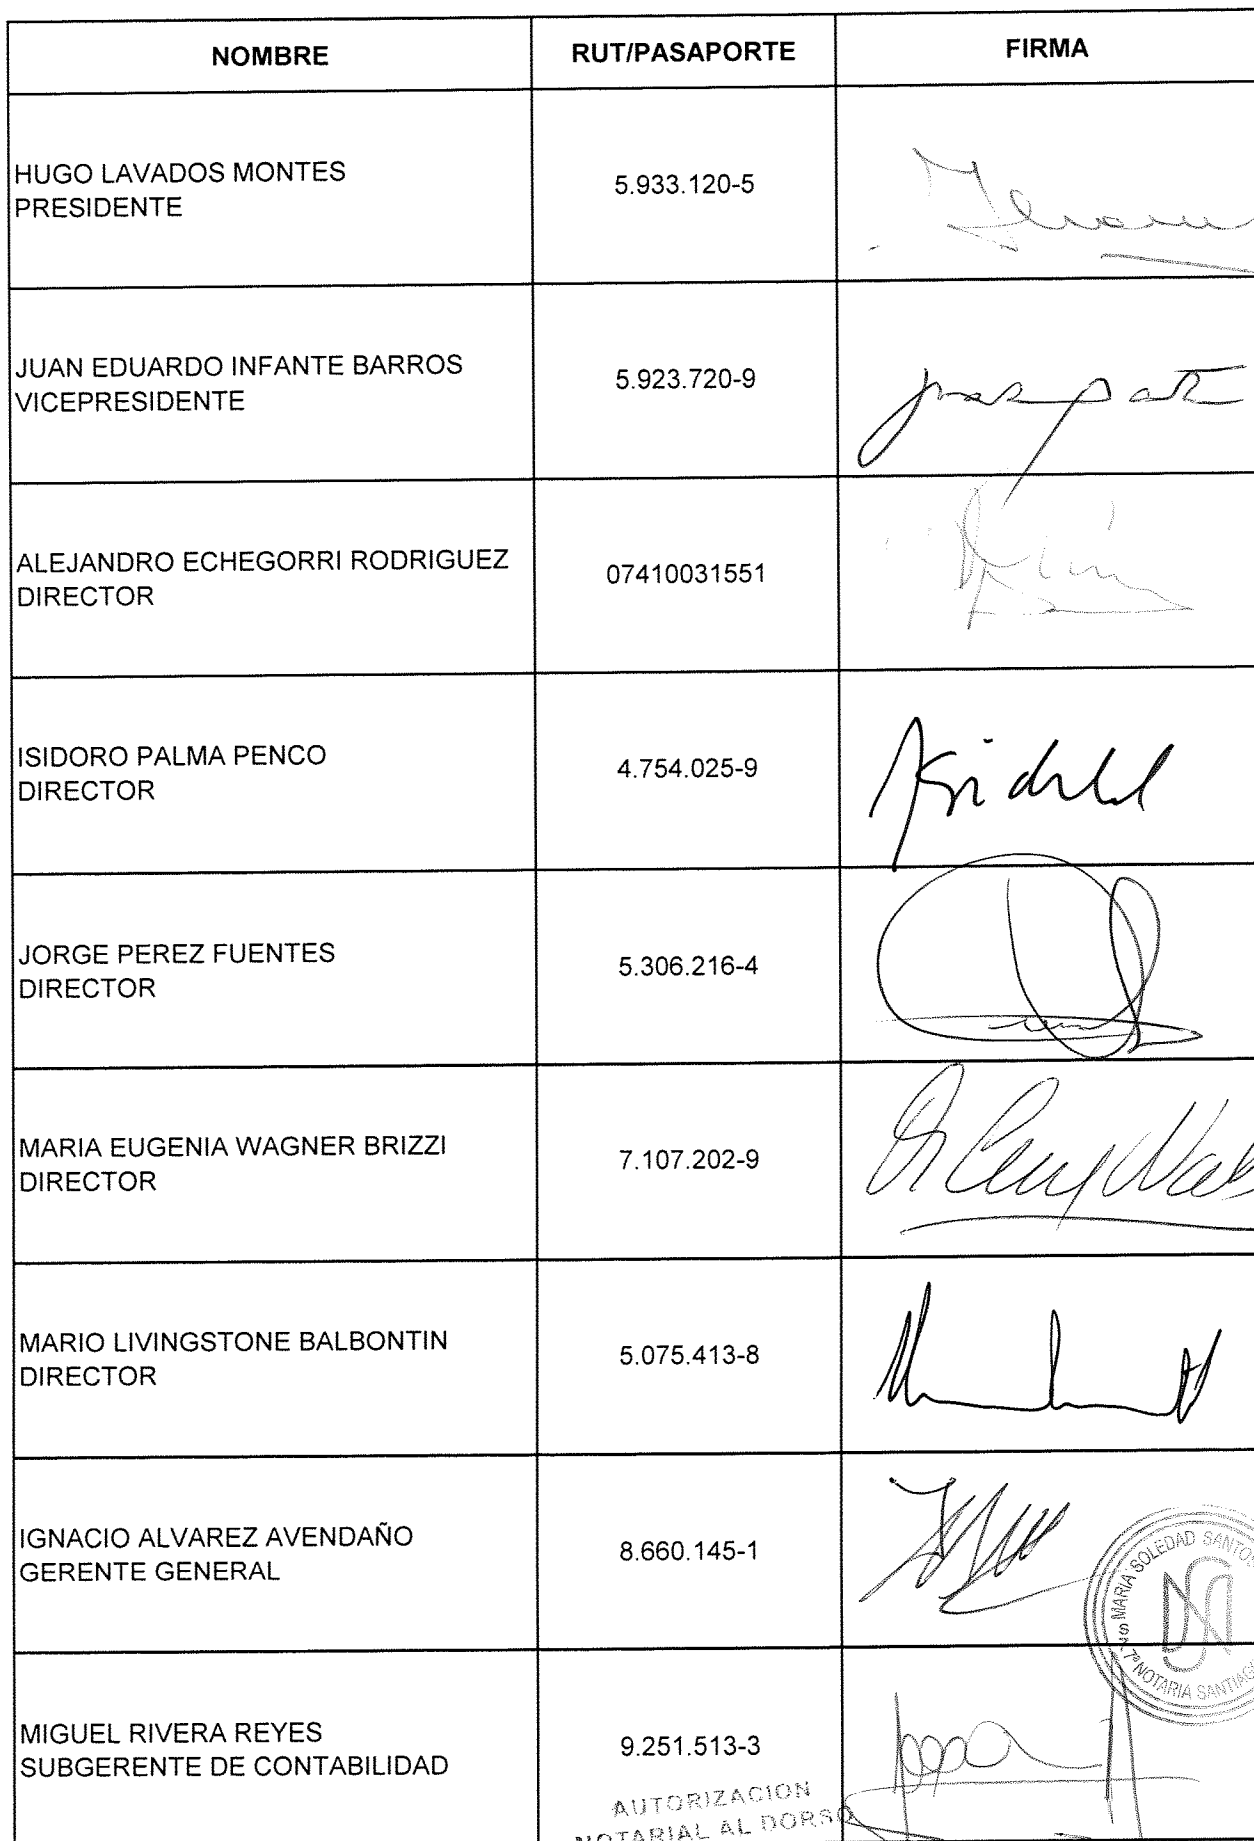 NOMBRE RUT/PASAPORTE FIRMA
HUGO LAVADOS MONTES
PRESIDENTE
5.933.120-5
JUAN EDUARDO INFANTE BARROS
VICEPRESIDENTE
5.923.720-9
ALEJANDRO ECHEGORRI RODRIGUEZ
DIRECTOR
07410031551
ISIDORO PALMA PENCO
DIRECTOR
4.754.025-9
JORGE PEREZ FUENTES
DIRECTOR
5.306.216-4
MARIA EUGENIA WAGNER BRIZZI
DIRECTOR
7.107.202-9
MARIO LIVINGSTONE BALBONTIN
DIRECTOR
5.075.413-8
IGNACIO ALVAREZ AVENDAÑO
GERENTE GENERAL
8.660.145-1
MARIA SOLEDAD SANTOS
7ª NOTARIA SANTIAGO
MIGUEL RIVERA REYES
SUBGERENTE DE CONTABILIDAD
9.251.513-3
AUTORIZACION
NOTARIAL AL DORSO